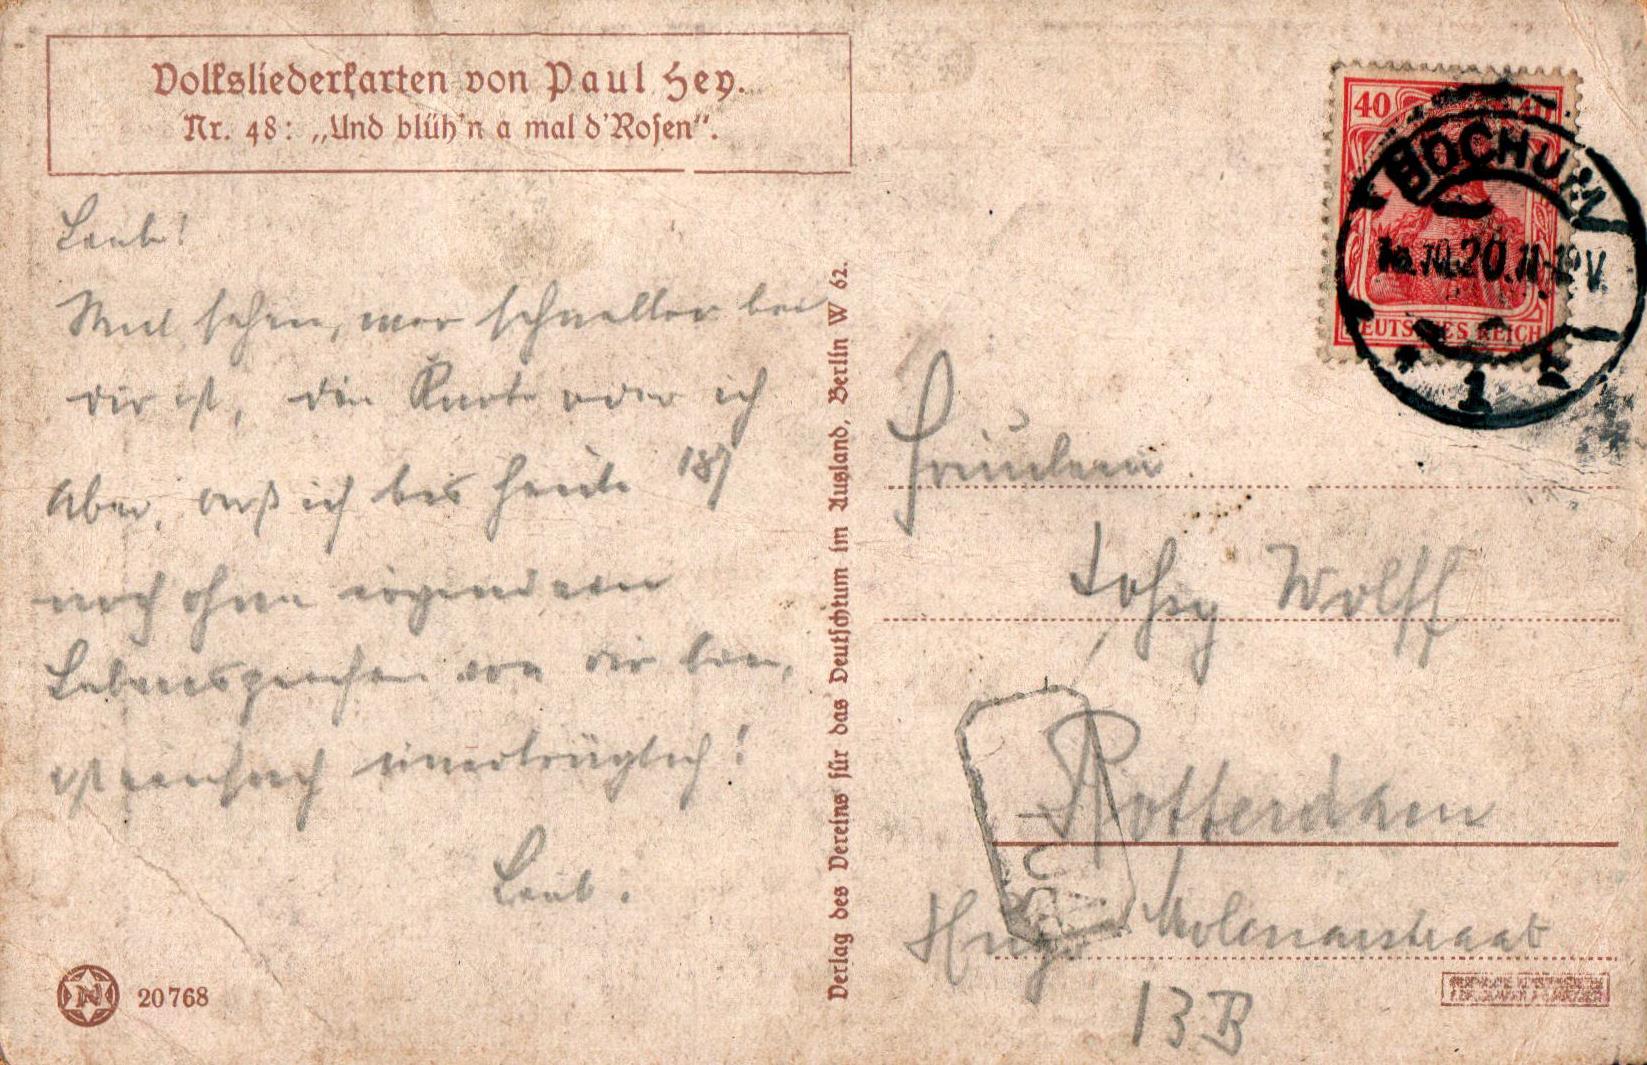 Volksliederkarten von Paul Hey.
Nr. 48: „Und blüh'n a mal d'Rosen".
Mal sehen, wer schneller bei
dir ist, die Karte oder ich
Aber, daß ich bis heute 18/
noch ohne irgend ein
Lebenszeichen von dir bin,
ist einfach unerträglich!
20768
Verlag des Vereins für das Deutschtum im Ausland, Berlin W 62.
40 40
DEUTSCHES REICH
BOCHUM
10.20.11-12 V.
1
Fräulein
Wolff
Rotterdam
Hugo Molenaarstraat
13 B